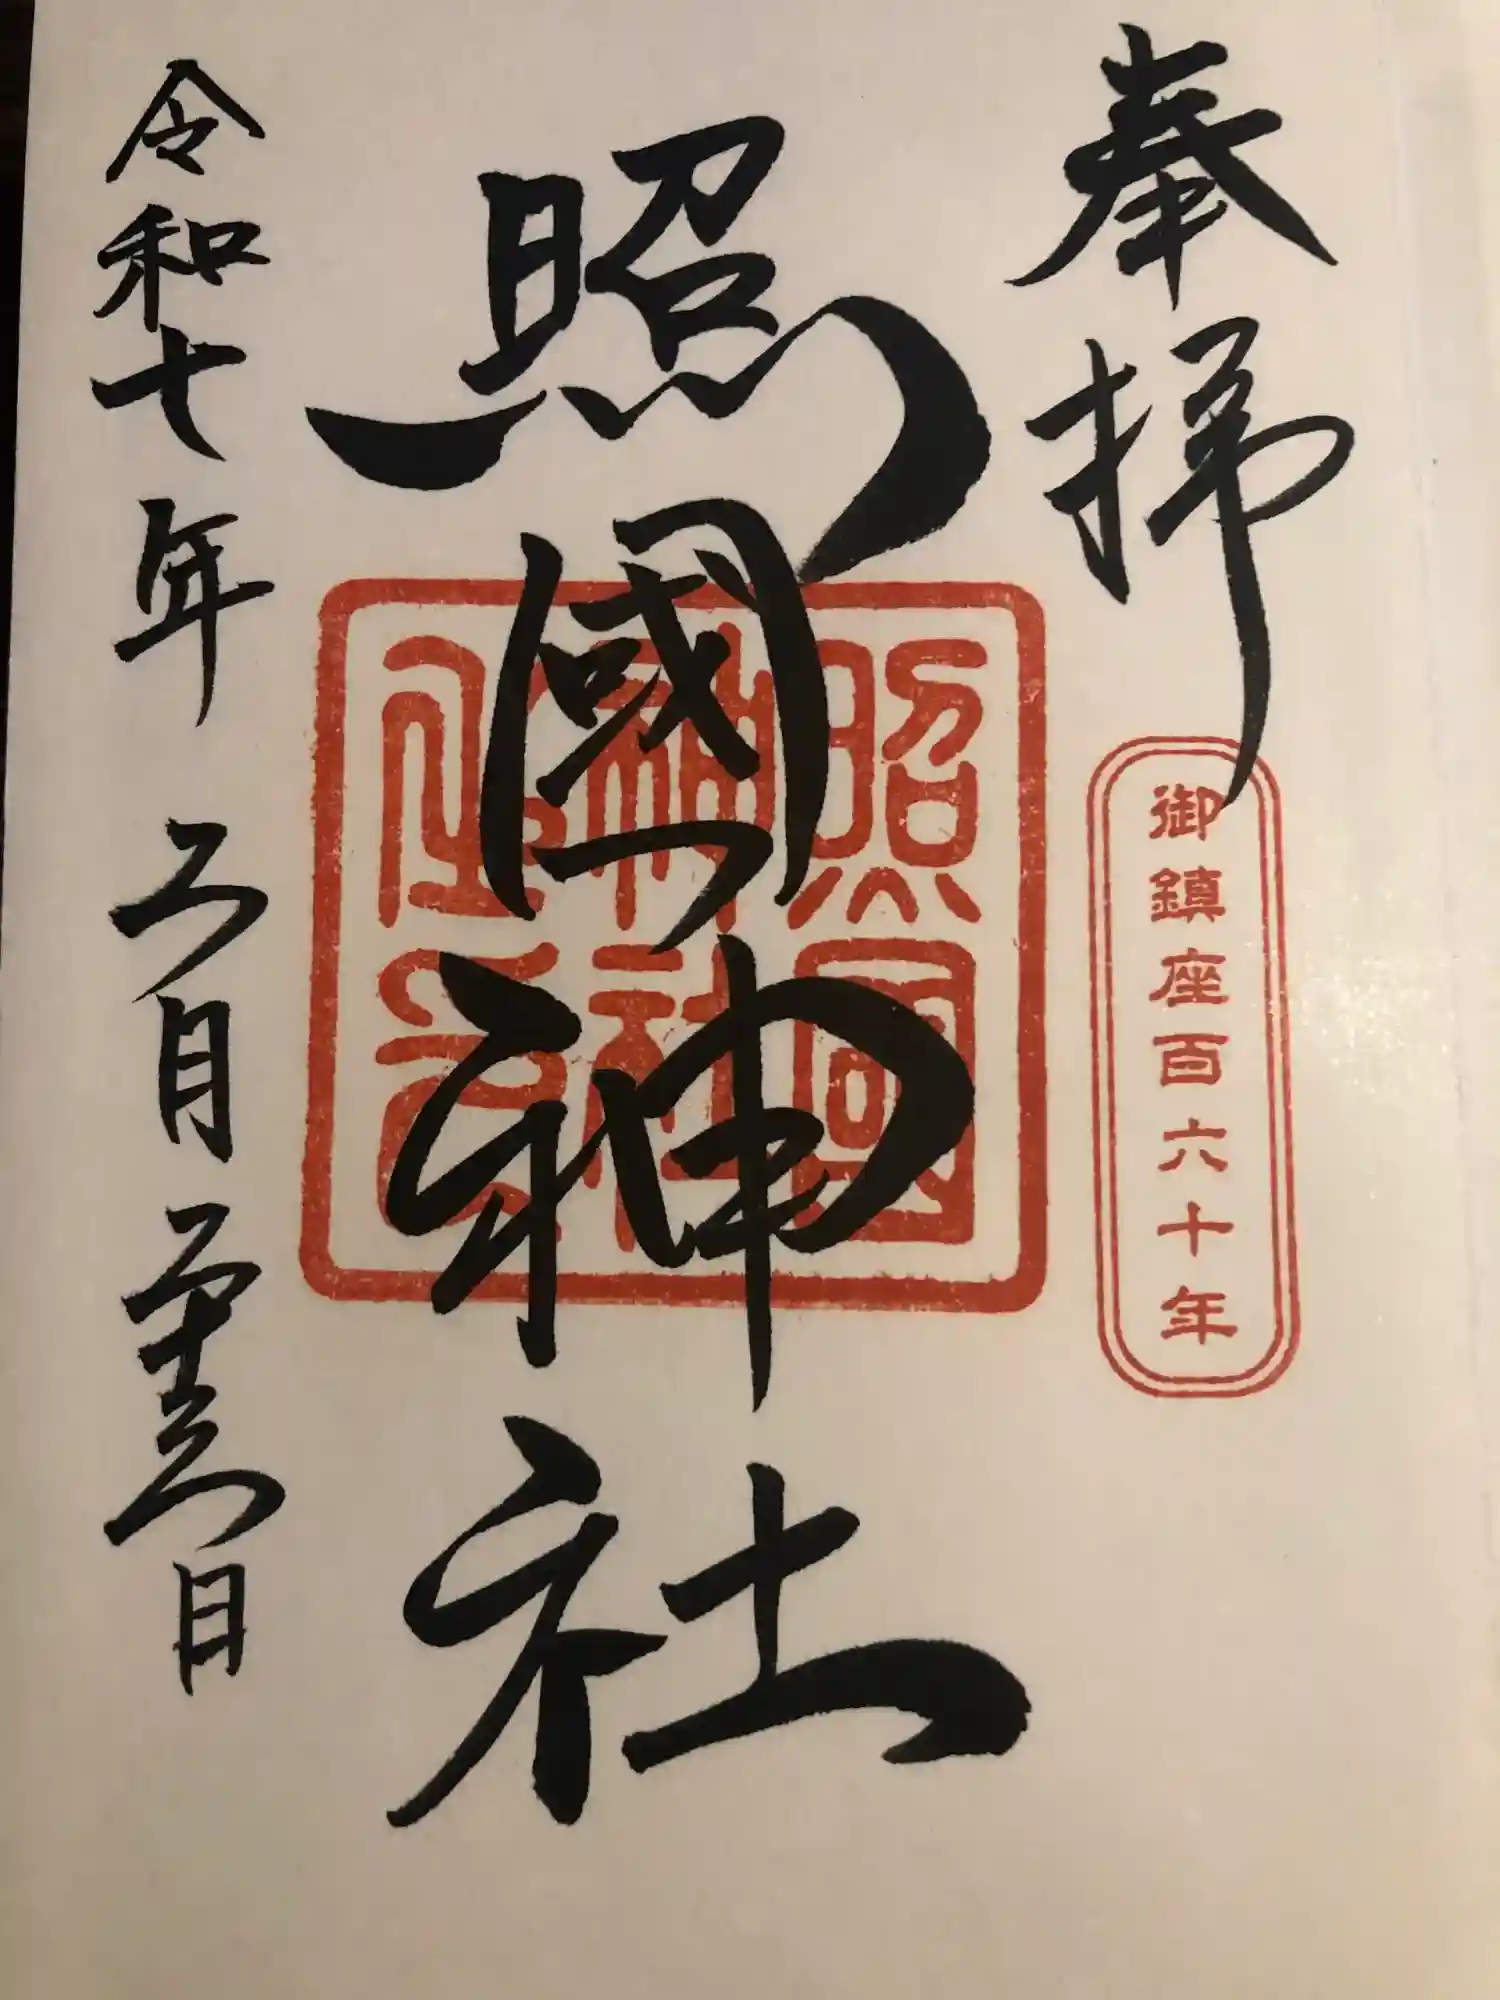 奉拝
御鎮座百六十年
照國神社
照國
神社
令和七年
月
日